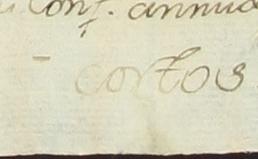 Conf. annua
cortos